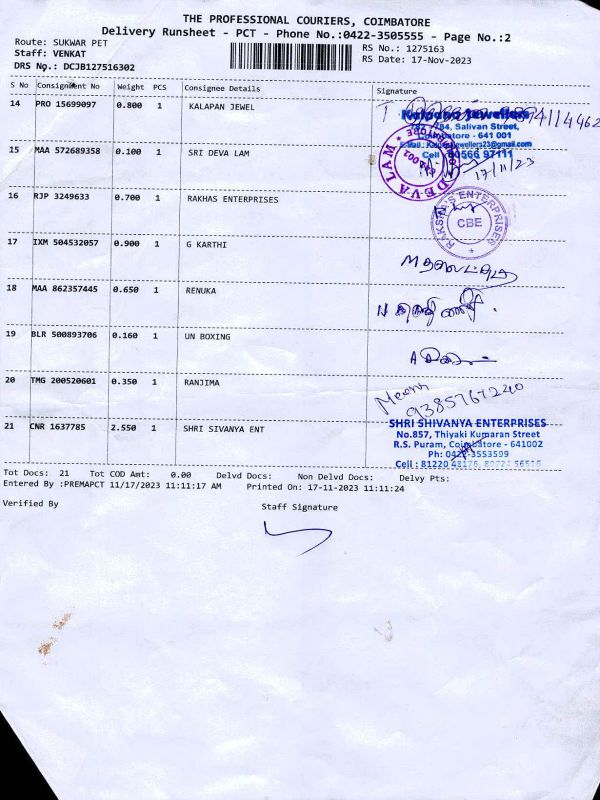 THE PROFESSIONAL COURIERS, COIMBATORE
Delivery Runsheet - PCT - Phone No.:0422-3505555 - Page No.:2
Route: SUKWAR PET
RS No.: 1275163
Staff: VENKAT
RS Date: 17-Nov-2023
DRS No.: DCJB127516302
S No Consignment No Weight PCS Consignee Details Signature
14 PRO 15699097 0.800 1 KALAPAN JEWEL
Kalpana Jewellers
Salivan Street,
Coimbatore - 641 001
Cell : 97111
15 MAA 572689358 0.100 1 SRI DEVA LAM
DEVALAM
17/11/23
16 RJP 3249633 0.700 1 RAKHAS ENTERPRISES
RAKSHA'S ENTERPRISES
CBE
17 IXM 504532057 0.900 1 G KARTHI
18 MAA 862357445 0.650 1 RENUKA
19 BLR 500893706 0.160 1 UN BOXING
20 TMG 200520601 0.350 1 RANJIMA
9385767240
21 CNR 1637785 2.550 1 SHRI SIVANYA ENT
SHRI SHIVANYA ENTERPRISES
No.857, Thiyaki Kumaran Street
R.S. Puram, Coimbatore - 641002
Ph: 0422-3553509
Cell : 81220 48176, 80724 56516
Tot Docs: 21 Tot COD Amt: 0.00 Delvd Docs: Non Delvd Docs: Delvy Pts:
Entered By :PREMAPCT 11/17/2023 11:11:17 AM Printed On: 17-11-2023 11:11:24
Verified By Staff Signature